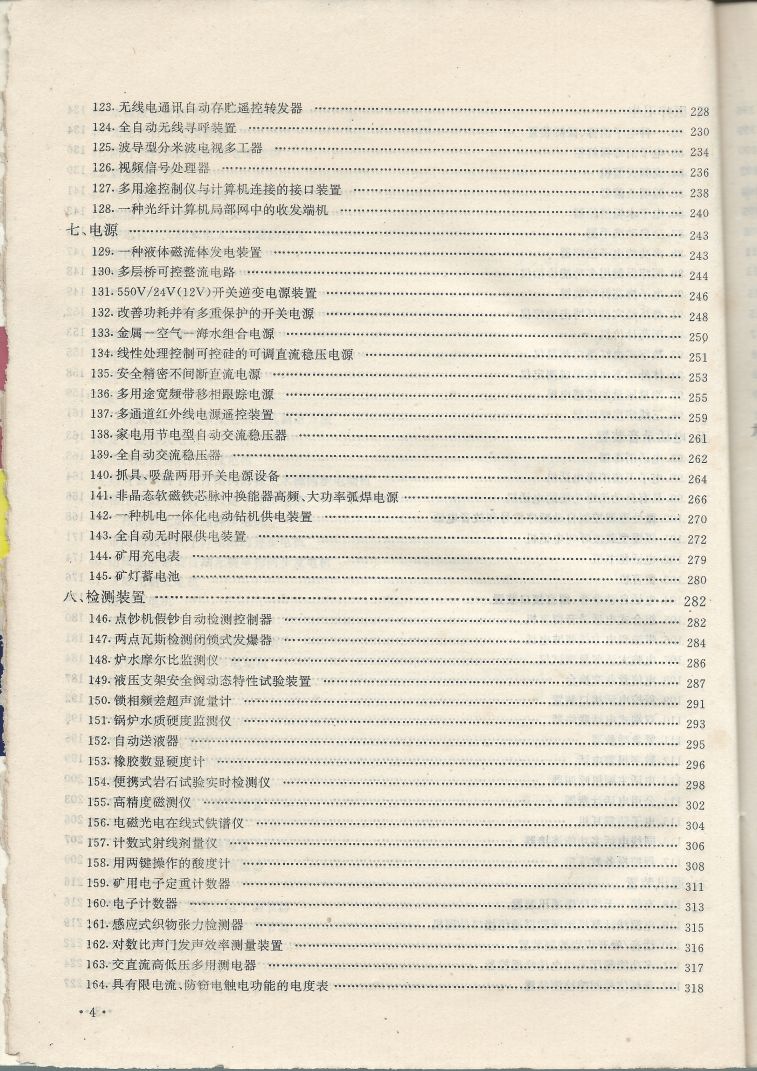 123. 无线电通讯自动存贮遥控转发器 …… 228
124. 全自动无线寻呼装置 …… 230
125. 波导型分米波电视多工器 …… 234
126. 视频信号处理器 …… 236
127. 多用途控制仪与计算机连接的接口装置 …… 238
128. 一种光纤计算机局部网中的收发端机 …… 240
七、电源 …… 243
129. 一种液体磁流体发电装置 …… 243
130. 多层桥可控整流电路 …… 244
131. 550V/24V(12V)开关逆变电源装置 …… 246
132. 改善功耗并有多重保护的开关电源 …… 248
133. 金属—空气—海水组合电源 …… 250
134. 线性处理控制可控硅的可调直流稳压电源 …… 251
135. 安全精密不间断直流电源 …… 253
136. 多用途宽频带移相跟踪电源 …… 255
137. 多通道红外线电源遥控装置 …… 259
138. 家电用节电型自动交流稳压器 …… 261
139. 全自动交流稳压器 …… 262
140. 抓具、吸盘两用开关电源设备 …… 264
141. 非晶态软磁铁芯脉冲换能器高频、大功率弧焊电源 …… 266
142. 一种机电一体化电动钻机供电装置 …… 270
143. 全自动无时限供电装置 …… 272
144. 矿用充电表 …… 279
145. 矿灯蓄电池 …… 280
八、检测装置 …… 282
146. 点钞机假钞自动检测控制器 …… 282
147. 两点瓦斯检测闭锁式发爆器 …… 284
148. 炉水摩尔比监测仪 …… 286
149. 液压支架安全阀动态特性试验装置 …… 287
150. 锁相频差超声流量计 …… 291
151. 锅炉水质硬度监测仪 …… 293
152. 自动送液器 …… 295
153. 橡胶数显硬度计 …… 296
154. 便携式岩石试验实时检测仪 …… 298
155. 高精度磁测仪 …… 302
156. 电磁光电在线式铁谱仪 …… 304
157. 计数式射线剂量仪 …… 306
158. 用两键操作的酸度计 …… 308
159. 矿用电子定重计数器 …… 311
160. 电子计数器 …… 313
161. 感应式织物张力检测器 …… 315
162. 对数比声门发声效率测量装置 …… 316
163. 交直流高低压多用测电器 …… 317
164. 具有限电流、防窃电触电功能的电度表 …… 318
· 4 ·